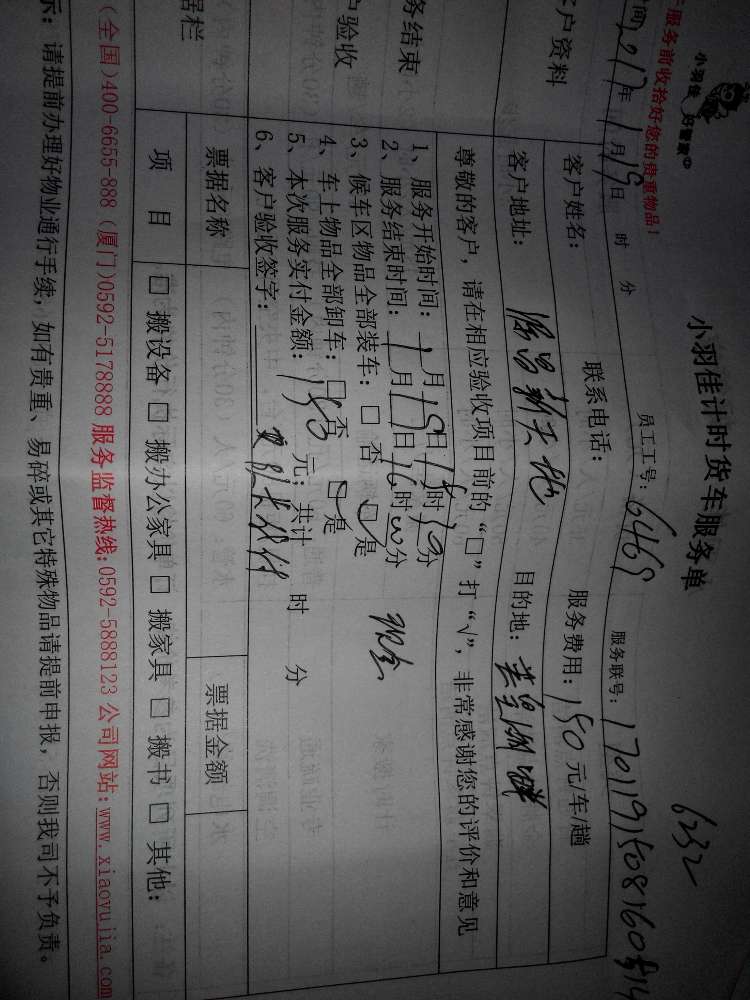 小羽佳 好管家
示:服务前收拾好您的贵重物品!
小羽佳计时货车服务单
6232
时间2017年1月19日 时 分
员工工号:6469
服务联号:
客户资料
客户姓名:
联系电话:
服务费用:150元/车/趟
客户地址:
目的地:
尊敬的客户,请在相应验收项目前的“□”打“√”,非常感谢您的评价和意见
务结束
户验收
1、服务开始时间:1月19日15时10分
2、服务结束时间:1月19日16时00分
3、候车区物品全部装车:□ 否 ☑是
4、车上物品全部卸车:□否 ☑是
现金
5、本次服务实付金额:150 元;共计 时 分
6、客户验收签字:
据栏
票据名称
票据金额
项 目
□ 搬设备 □ 搬办公家具 □ 搬家具 □ 搬书 □ 其他:
(全国)400-6655-888 (厦门)0592-5178888 服务监督热线:0592-5888123 公司网站:www.xiaoyujia.com
示:请提前办理好物业通行手续,如有贵重、易碎或其它特殊物品请提前申报,否则我司不予负责。